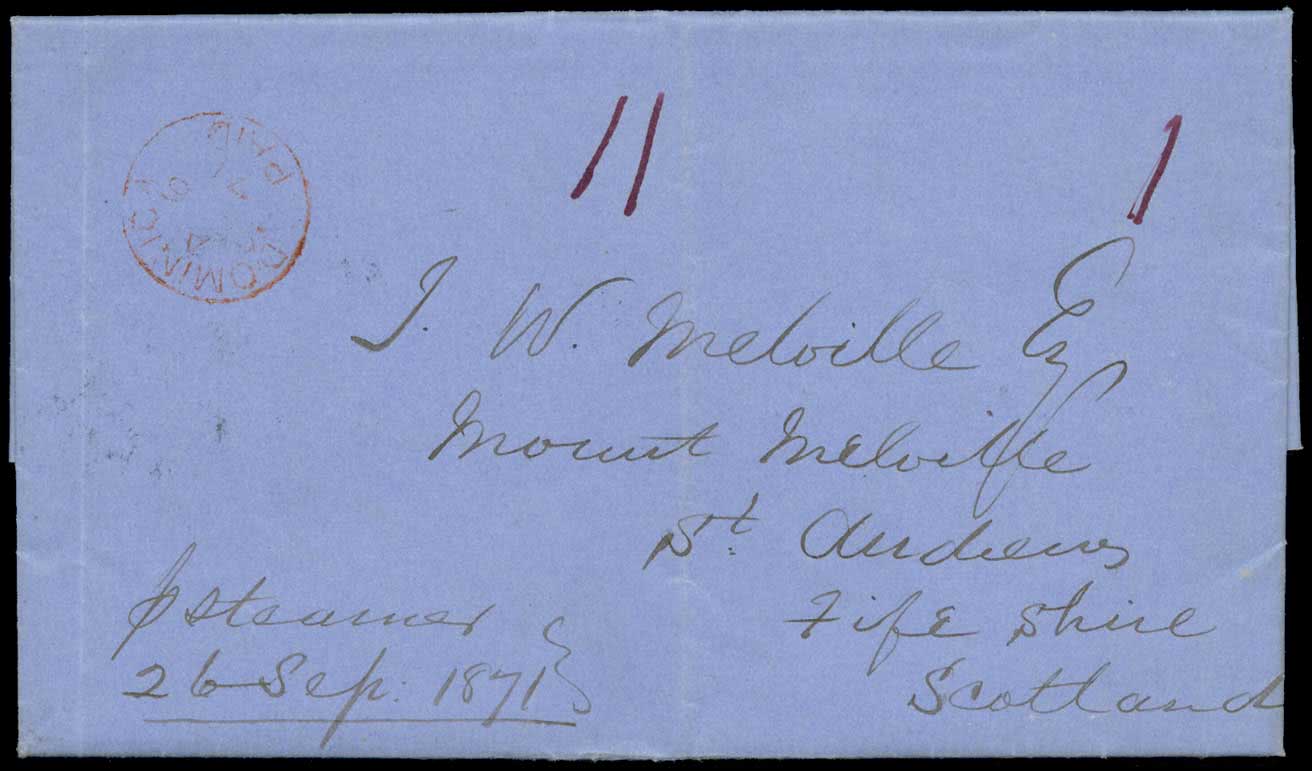 PAID
DOMINICA
11
1
J. W. Melville Esq
Mount Melville
St. Andrews
Fife Shire
Scotland
p steamer
26 Sep. 1871